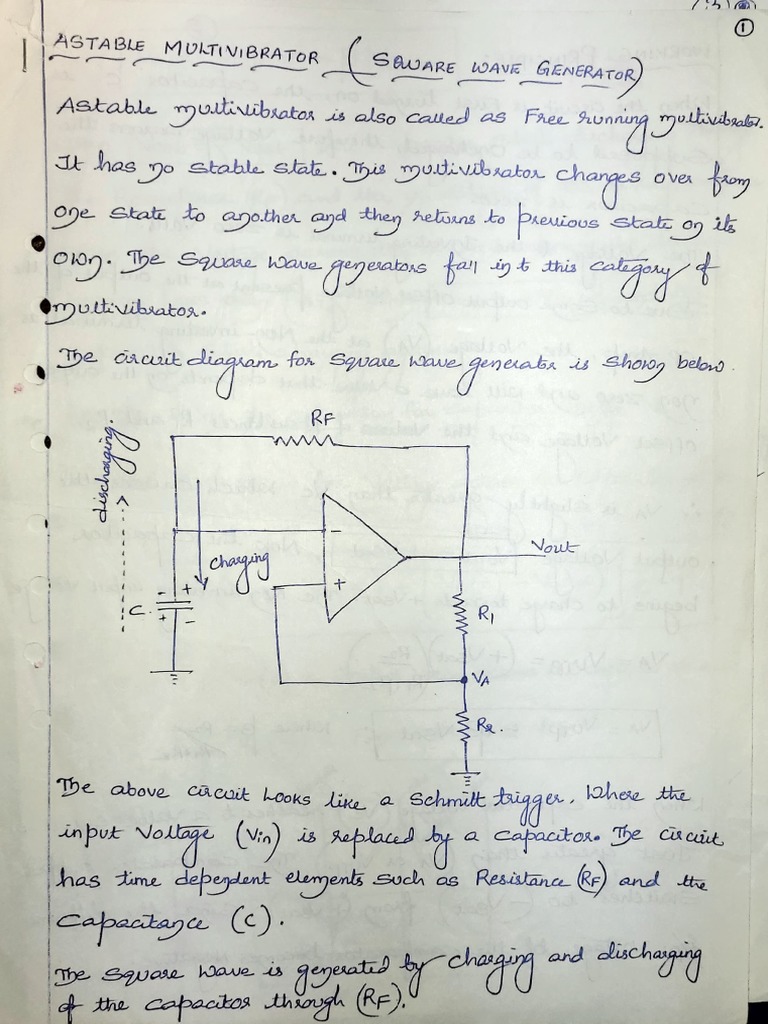 1
ASTABLE MULTIVIBRATOR (SQUARE WAVE GENERATOR)
Astable multivibrator is also called as Free running multivibrator.
It has no stable state. This multivibrator changes over from
one state to another and then returns to previous state on its
own. The square wave generators fall int this category of
multivibrator.
The circuit diagram for square wave generator is shown below.
RF
discharging.
-
Vout
charging
+
- +
C.
+ -
R1
VA
R2.
The above circuit looks like a Schmitt trigger, where the
input voltage (Vin) is replaced by a capacitor. The circuit
has time dependent elements such as Resistance (RF) and the
Capacitance (C).
The square wave is generated by charging and discharging
of the capacitor through (RF).